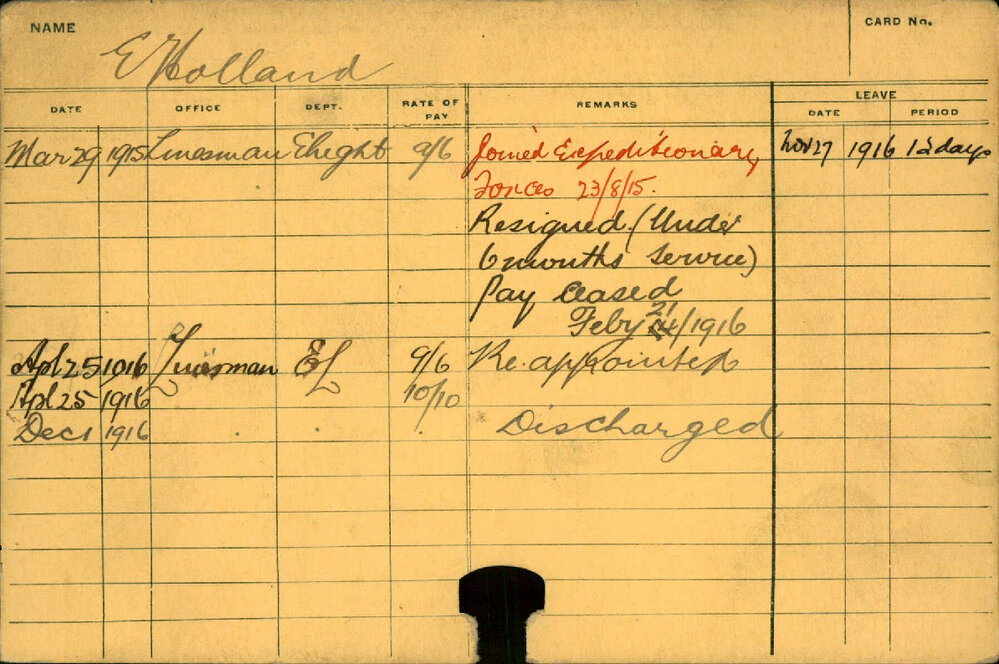 NAME
CARD No.
E Holland
DATE OFFICE DEPT. RATE OF PAY REMARKS LEAVE
DATE PERIOD
Mar 29 1915 Linesman Elight 9/6 Joined Expeditionary Nov 27 1916 12 days
Forces 23/8/15.
Resigned (Under
6 months service)
Pay ceased
21
Feby /1916
Apl 25 1916 Linesman EL 9/6 Re-appointed
Apl 25 1916 10/10
Dec 1 1916 . . . Discharged